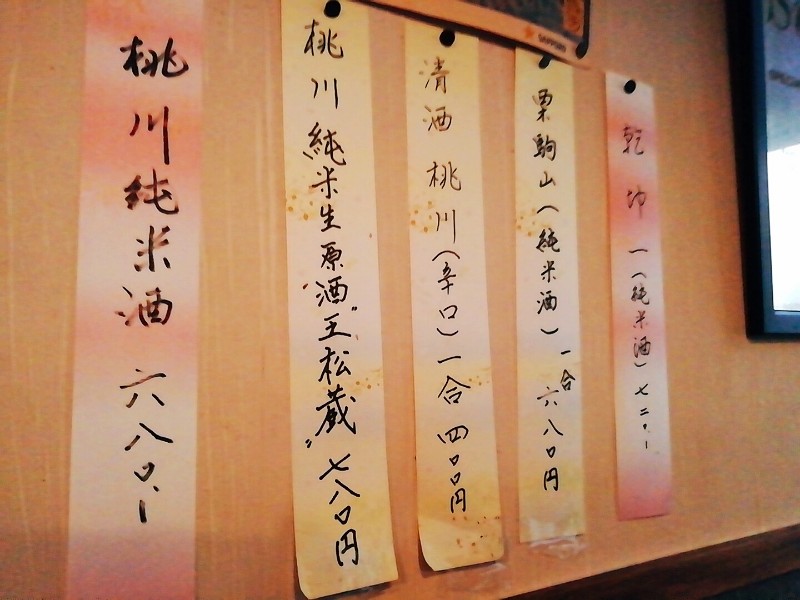 SAPPORO
乾坤一(純米酒)七二〇.-
栗駒山(純米酒)一合六八〇円
清酒桃川(辛口)一合四〇〇円
桃川純米生原酒〝王松蔵〟七八〇円
桃川純米酒六八〇.-